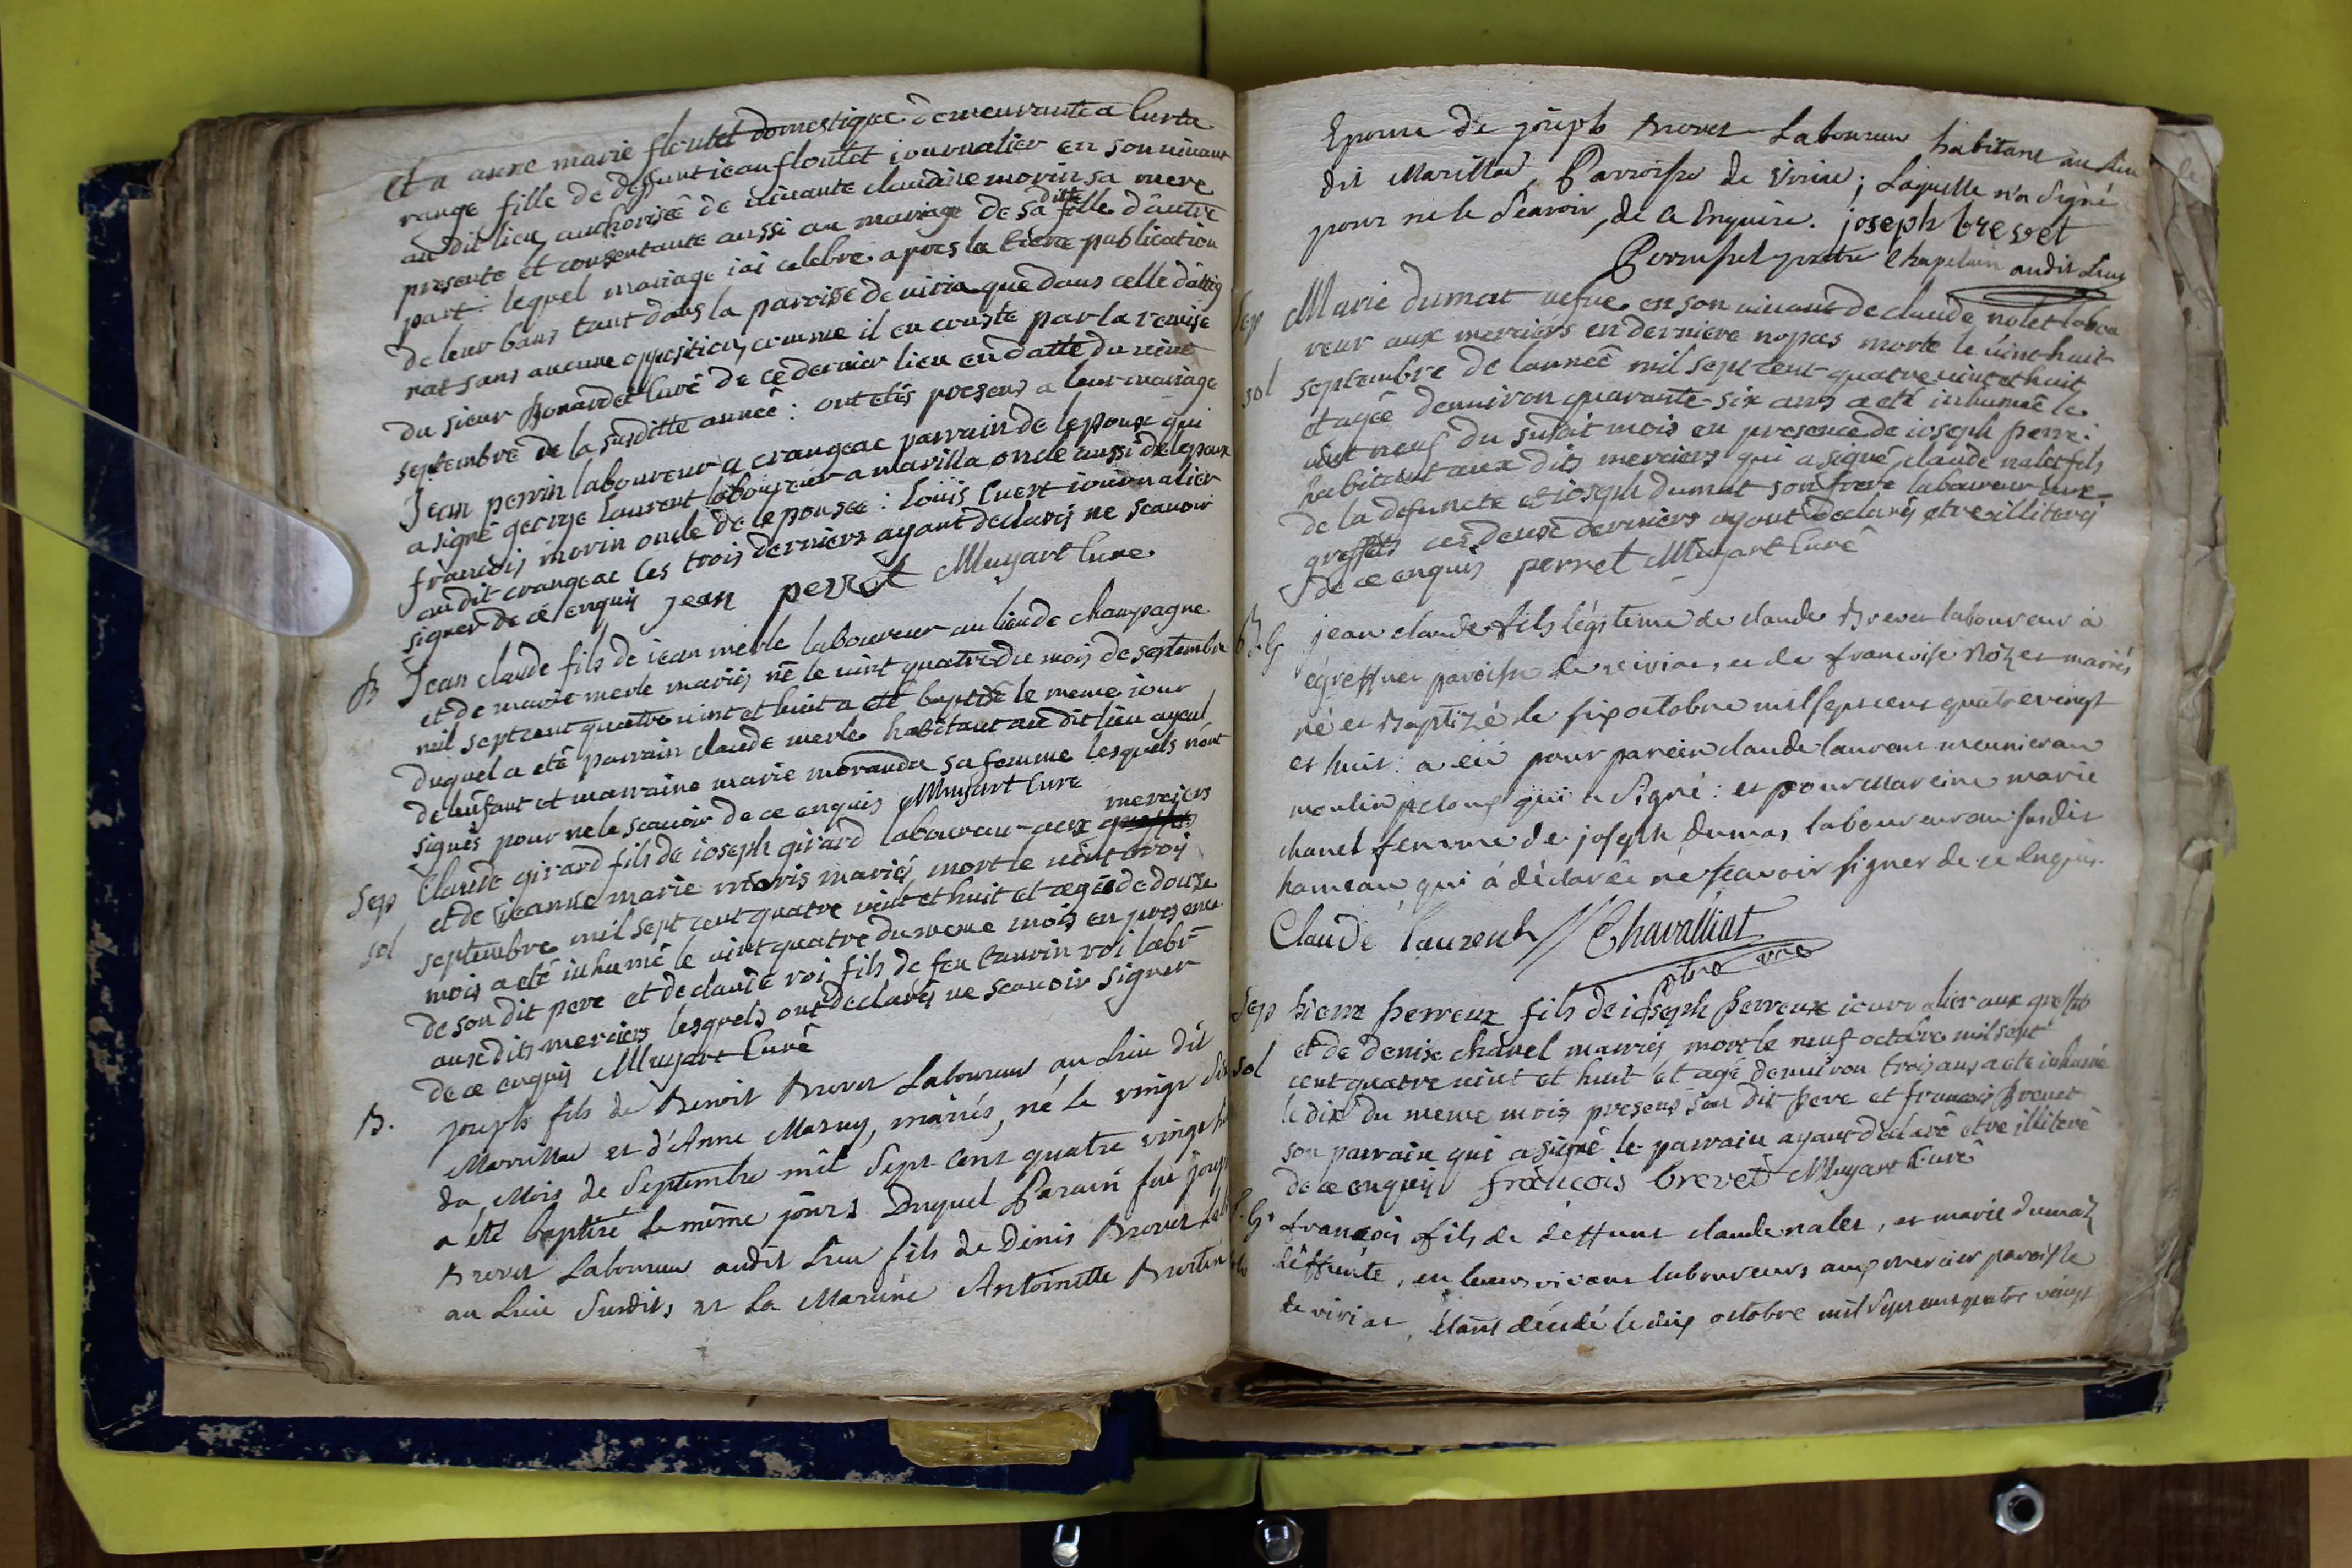 et a anne marie floutet domestique demeurante a Curta
range fille de deffunt iean floutet iournalier en son uiuant
au dit lieu, authorisée de uiuante claudine morin sa mere
presente et consentante aussi au mariage de sa ditte fille d'autre
part: lequel mariage iai celebré apres la tierce publication
de leur bans tant dans la paroisse de uiria que dans celle d'attig
nat sans aucune opposition, comme il en conste par la remise
du sieur Bonardet Curé de ce dernier lieu en datte du uint
septembre de la susditte année: ont etés presens a leur mariage
Jean perrin laboureur a crangeac parrain de lepoux qui
a signé george laurent laboureur a marilla, oncle aussi de lepoux
francois morin oncle de lepousée: loüis Cuert iournalier
au dit crangeac les trois derniers ayant declarés ne scauoir
signer de ce enquis jean perret Muyart Curé
B Jean claude fils de iean merle laboureur au lieu de champagne
et de marie merle mariés né le uint quatre du mois de septembre
mil sept cent quatre uint et huit a eté baptisé le meme iour
duquel a eté parrain claude merle habitant au dit lieu ayeul
de lenfant et marraine marie morandu sa femme lesquels n'ont
signés pour ne le scauoir de ce enquis Muyart Curé
merciers
Sep Claude girard fils de ioseph girard laboureur aux greffets
et de ieanne marie moris mariés mort le uint trois
sol septembre mil sept cent quatre uint et huit et agée de douze
mois a eté inhumé le uint quatre du meme mois en presence
de son dit pere et de claude roi fils de feu taurin roi labr
aux dits merciers lesquels ont declarés ne scauoir signer
de ce enquis Muyart Curé
B. joseph fils de Benoit Brevet Laboureur au Lieu dit
Marillat et d'Anne Maruy, mariés, né le vingt six
du Mois de Septembre mil Sept Cent quatre vingt h
a été baptisé le même jour; Duquel Parain fut joseph
Brevet Laboureur audit Lieu fils de Denis Brevet Lab
au Lieu Susdit, et La Mareine Antoinette
Epouse de joseph Brevet Laboureur habitant au Lieu
dit Marillat, Parroisse de Viriat; Laquelle n'a Signé
pour ne le Scavoir, de ce Enquise. joseph brevet
Perruset prêtre Chapelain audit Lieu
Sep Marie dumat uefue en son uiuant de claude nalet labou
reur aux merciers en derniere nopces morte le uint huit
sol septembre de lanneé mil sept cent quatre uint et huit
et agée denuiron quarante-six ans a eté inhumeé le
uint neuf du susdit mois en presence de ioseph perret
habitant aux dits merciers qui a signé, claude nalet fils
de la defuncte et ioseph dumat son frere laboureur aux
greffets ces deux derniers ayant declarés etre illiterés
de ce enquis perret Muyart Curé
B.G jean claude fils légitime de claude Brevet laboureur à
égreffner paroisse de viriat, et de francoise Nozet mariés
né et Baptizé le six octobre mil sept cent quatre vingt
et huit: a eü pour parein claude laurent meunier au
moulin peloux qui a Signé: et pour Mareine marie
chanel femme de joseph dumas laboureur au susdit
hameau qui a déclarée ne scavoir signer de ce Enquise.
Claude laurent // Chavalliat
ptre vic
Sep Pierre perreux fils de ioseph perreux iournalier aux greffets
et de denise chanel mariés mort le neuf octobre mil sept
sol cent quatre uint et huit et agé denuiron trois ans a eté inhumé
le dix du meme mois presens son dit pere et francois breuet
son parrain qui a signé le parrain ayant declaré etre illiteré
de ce enquis francois brevet Muyart Curé
S.G. francois fils de deffunt claude nalet, et marie dumaz
deffunte, en leurs vivant laboureurs aux mercier paroisse
de viriat, étant décedé le dix octobre mil sept cent quatre vingt